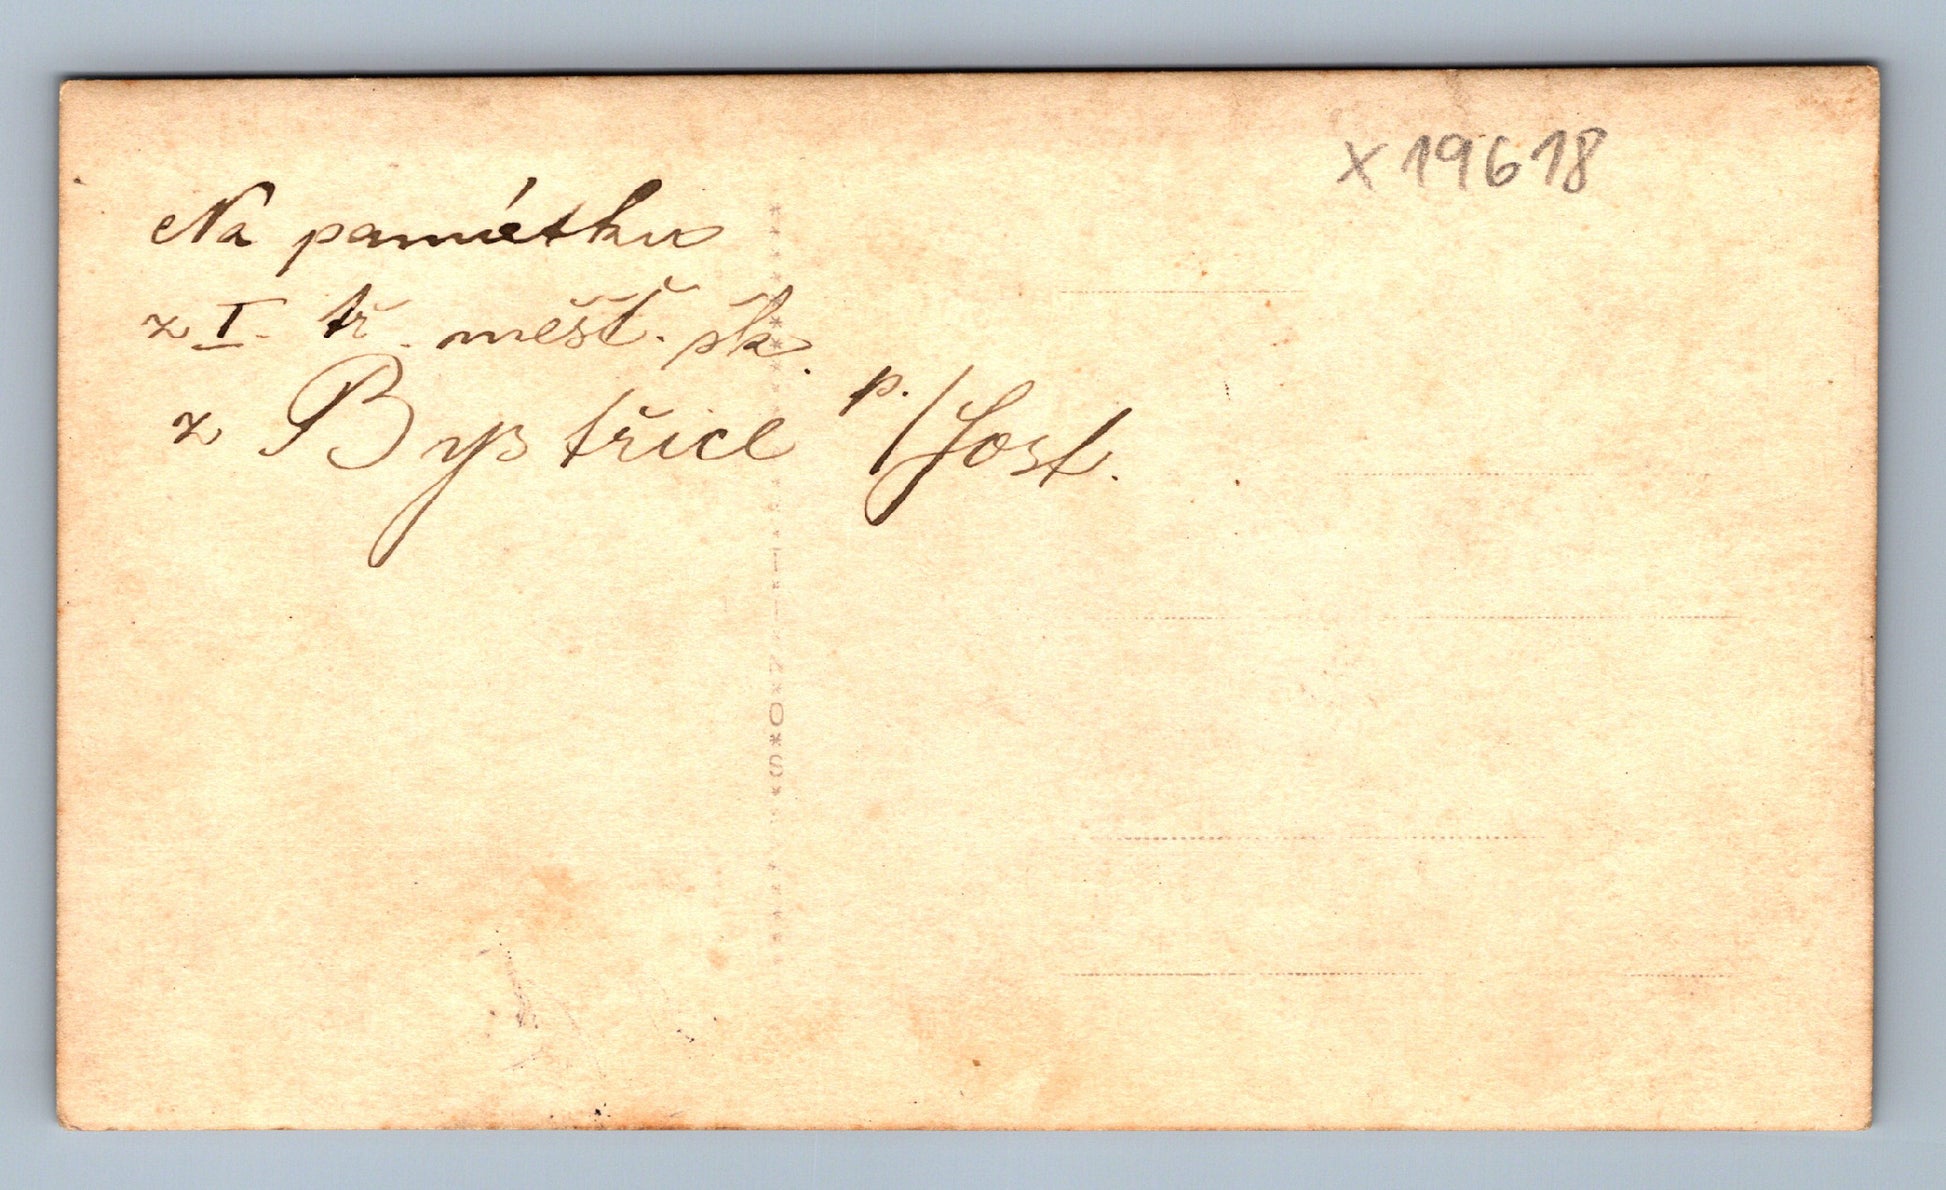 X 19618
Na památku
z I. tř. měšť. šk.
z Bystřice p./Host.